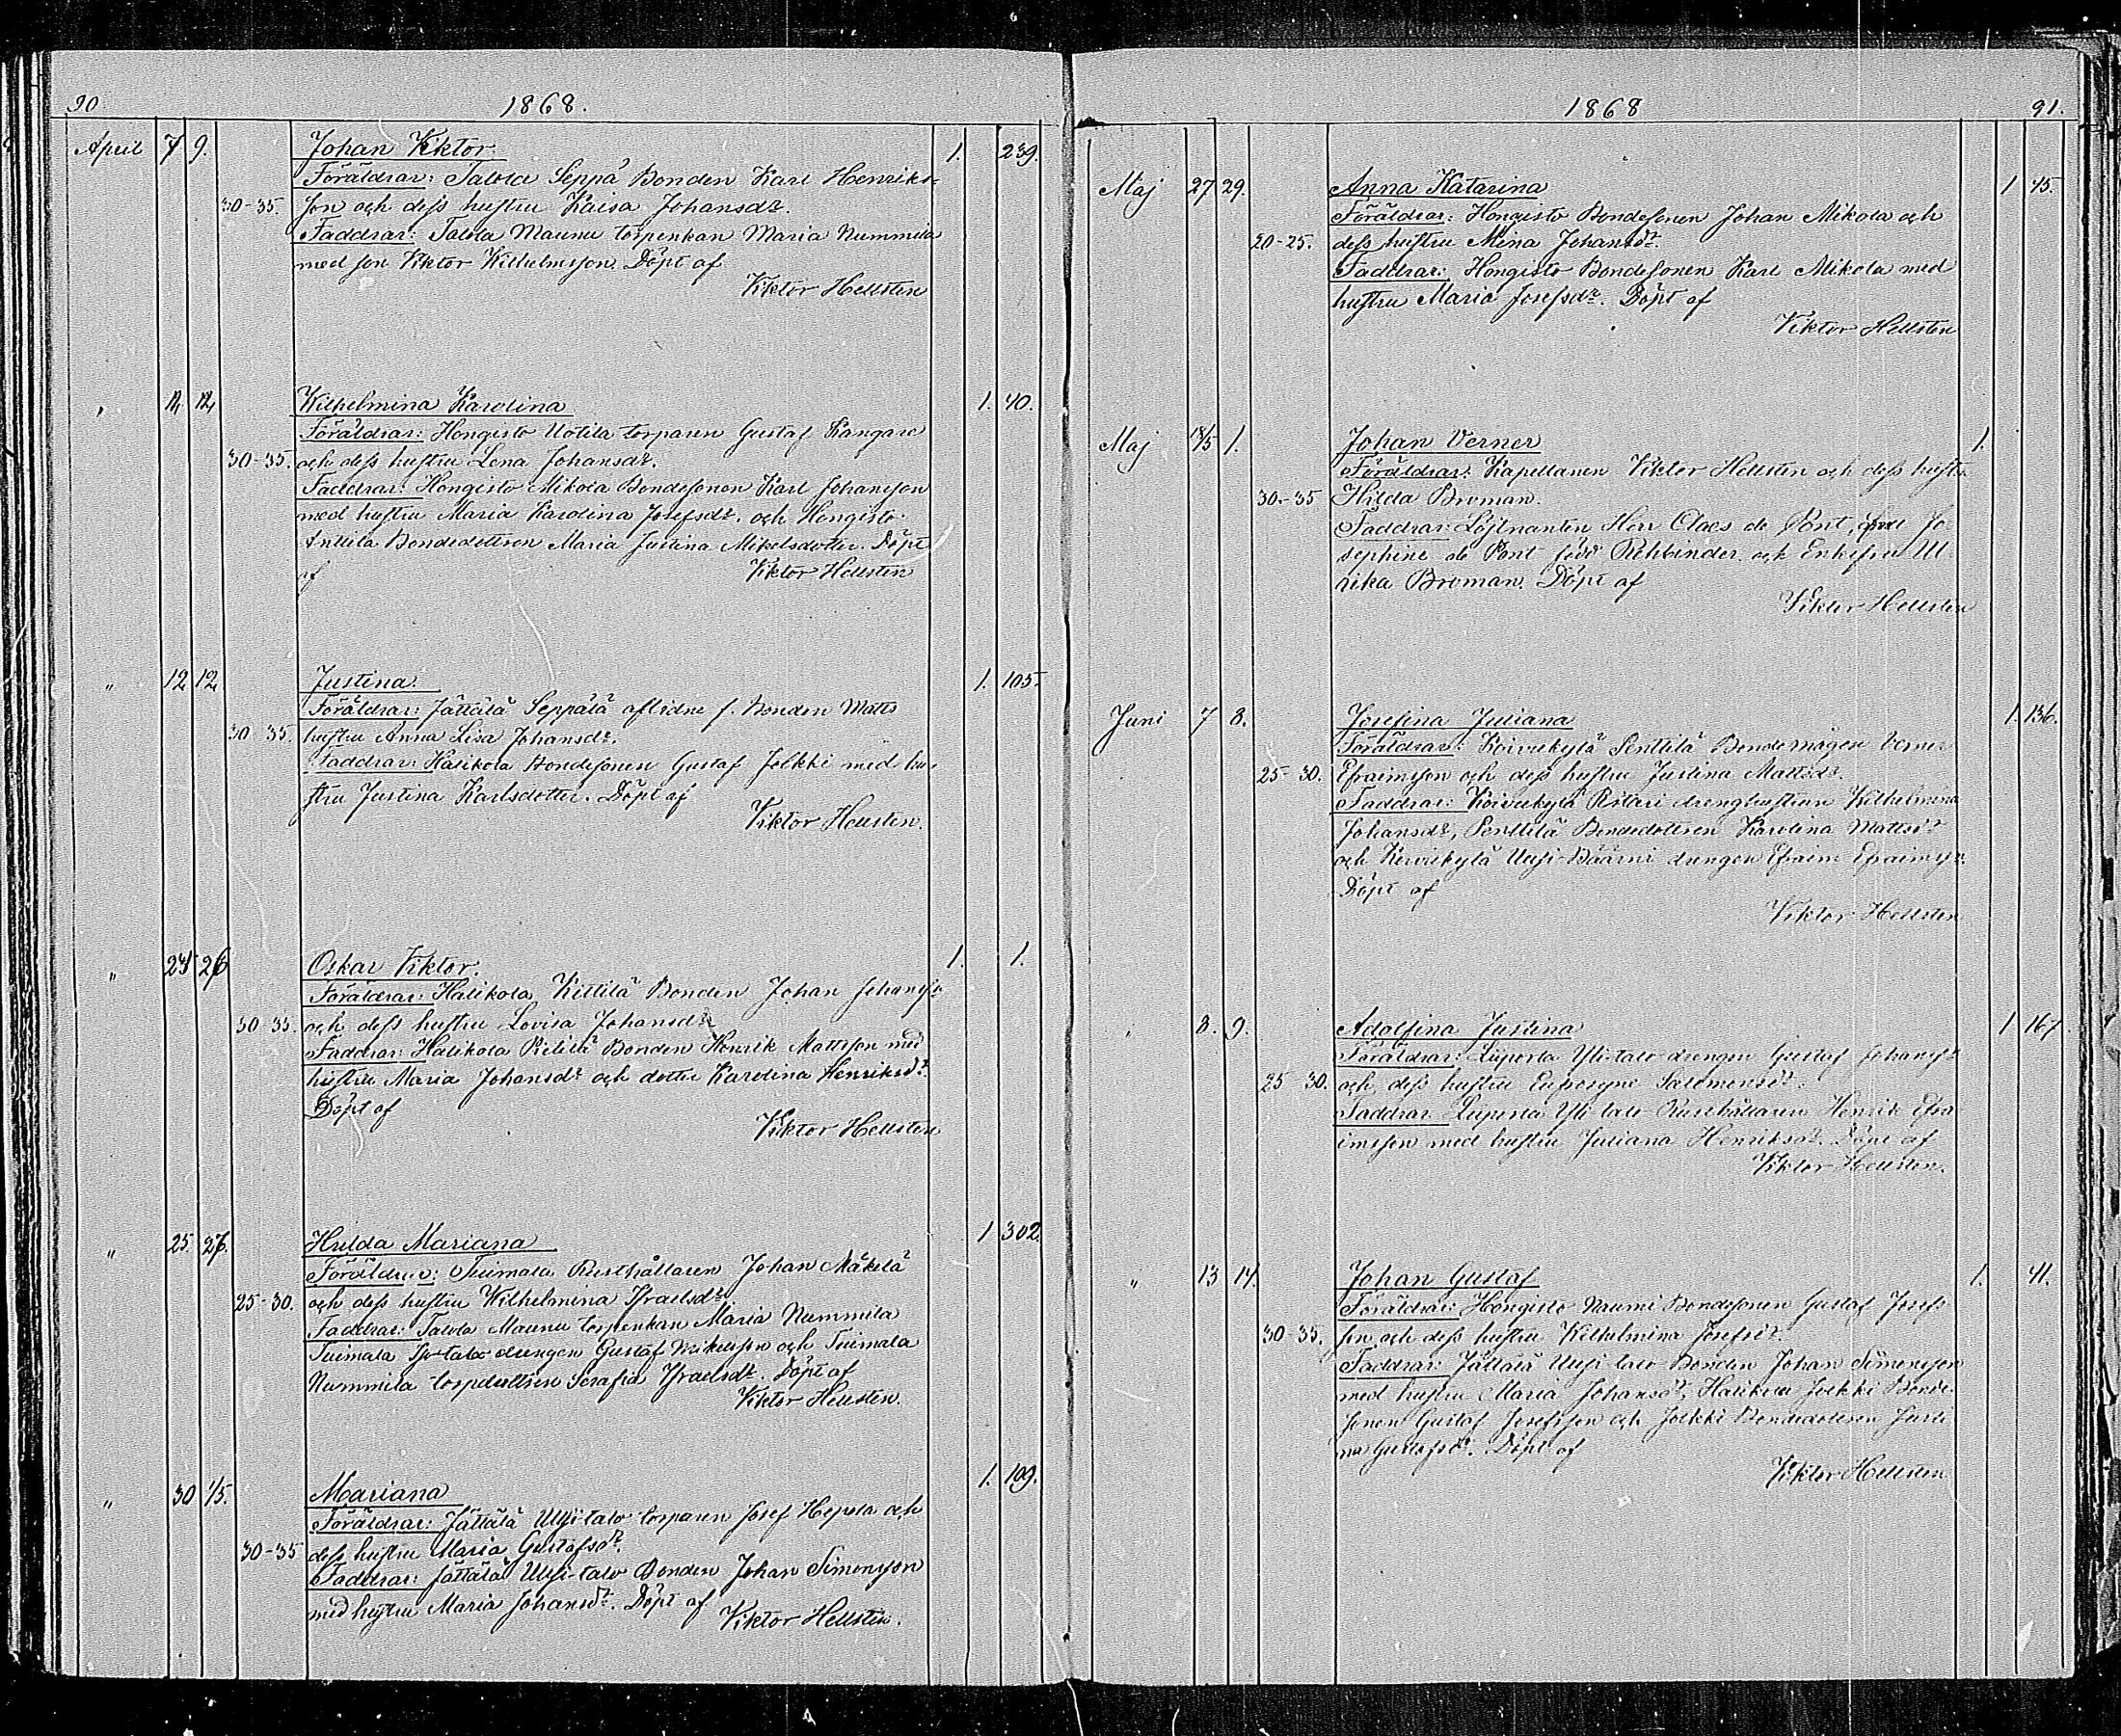 90 1868.
April 7 9. Johan Viktor 1. 239.
Föräldrar: Talola Seppä Bonden Karl Henriks-
30-35. son och dess hustru Kaisa Johansdr.
Faddrar: Talola Maunu torpenkan Maria Nummila
med son Viktor Wilhelmsson. Döpt af
Viktor Hellsten
12 12 Wilhelmina Karolina 1. 40.
Föräldrar: Hongisto Uotila torparen Gustaf Kangare
30-35. och dess hustru Lena Johansdr.
Faddrar: Hongisto Mikola Bondesonen Karl Johansson
med hustru Maria Karolina Josefsdr. och Hongisto
Anttila Bondedottren Maria Justina Mikelsdotter. Döpt
af Viktor Hellsten
" 12 12 Justina. 1. 105.
Föräldrar: Jättälä Seppälä aflidne f. Bonden Matts
30 35. hustru Anna Lisa Johansdr.
Faddrar: Halikola Bondesonen Gustaf Jolkki med hu-
stru Justina Karlsdotter. Döpt af
Viktor Hellsten.
" 24 26 Oskar Viktor. 1. 1.
Föräldrar: Halikola Kittilä Bonden Johan Johansson
30 35. och dess hustru Lovisa Johansdr
Faddrar: Halikola Bonden Henrik Mattsson med
hustru Maria Johansdr och dotter Karolina Henriksdr.
Döpt af
Viktor Hellsten
" 25 27. Hulda Mariana 1 302.
Föräldrar: Tuimala Rusthållaren Johan Mäkelä
25-30. och dess hustru Wilhelmina Israelsdr
Faddrar: Talola Maunu torpenkan Maria Nummila
Tuimala drengen Gustaf Mikelsson och Tuimala
Nummila torpdottren Serafia Israelsdr. Döpt af
Viktor Hellsten.
" 30 1/5. Mariana 1. 109.
Föräldrar: Jättälä Uusi-talo torparen Josef Hepola och
30-35 dess hustru Maria Gustafsdr.
Faddrar: Jättälä Uusi-talo Bonden Johan Simonsson
med hustru Maria Johansdr. Döpt af Viktor Hellsten.
1868 91.
Maj 27 29. Anna Katarina 1 45.
Föräldrar: Hongisto Bondesonen Johan Mikola och
20-25. dess hustru Mina Johansdr.
Faddrar: Hongisto Bondesonen Karl Mikola med
hustru Maria Josefsdr. Döpt af
Viktor Hellsten
Maj 18/5 1. Johan Verner 1.
Föräldrar: Kapellanen Viktor Hellsten och dess hustru
30-35 Hilda Broman.
Faddrar: Löjtnanten Herr Claes de Pont, fru Jo
sephine de Pont född Rehbinder och Enkefru Ul
rika Broman. Döpt af
Viktor Hellsten
Juni 7 8. Josefina Juliana 1. 136.
Föräldrar: Koivukylä Penttilä Bondemågen Verner
25-30. Efraimsson och dess hustru Justina Mattsdr.
Faddrar: Koivukylä Ristari drenghustrun Wilhelmina
Johansdr, Penttilä Bondedottren Karolina Mattsdr
och Koivukylä Uusi-Päärni drengen Efraim Efraimsson.
Döpt af
Viktor Hellsten
" 8. 9. Adolfina Justina 1 167.
Föräldrar: Liipola Yli-talo drengen Gustaf Johansson
25 30. och dess hustru Salomonsdr.
Faddrar Liipola Yli talo Rusthållaren Henrik Efra
imsson med hustru Juliana Henriksdr. Döpt af
Viktor Hellsten.
" 13 14. Johan Gustaf 1. 41.
Föräldrar: Hongisto Naumi Bondesonen Gustaf Josefs
30-35. son och dess hustru Wilhelmina Josefsdr.
Faddrar: Jättälä Uusi talo Bonden Johan Simonsson
med hustru Maria Johansdr, Halikola Jolkki Bonde-
sonen Gustaf Josefsson och Jolkki Bondedottren Justi
na Gustafsdr. Döpt af
Viktor Hellsten